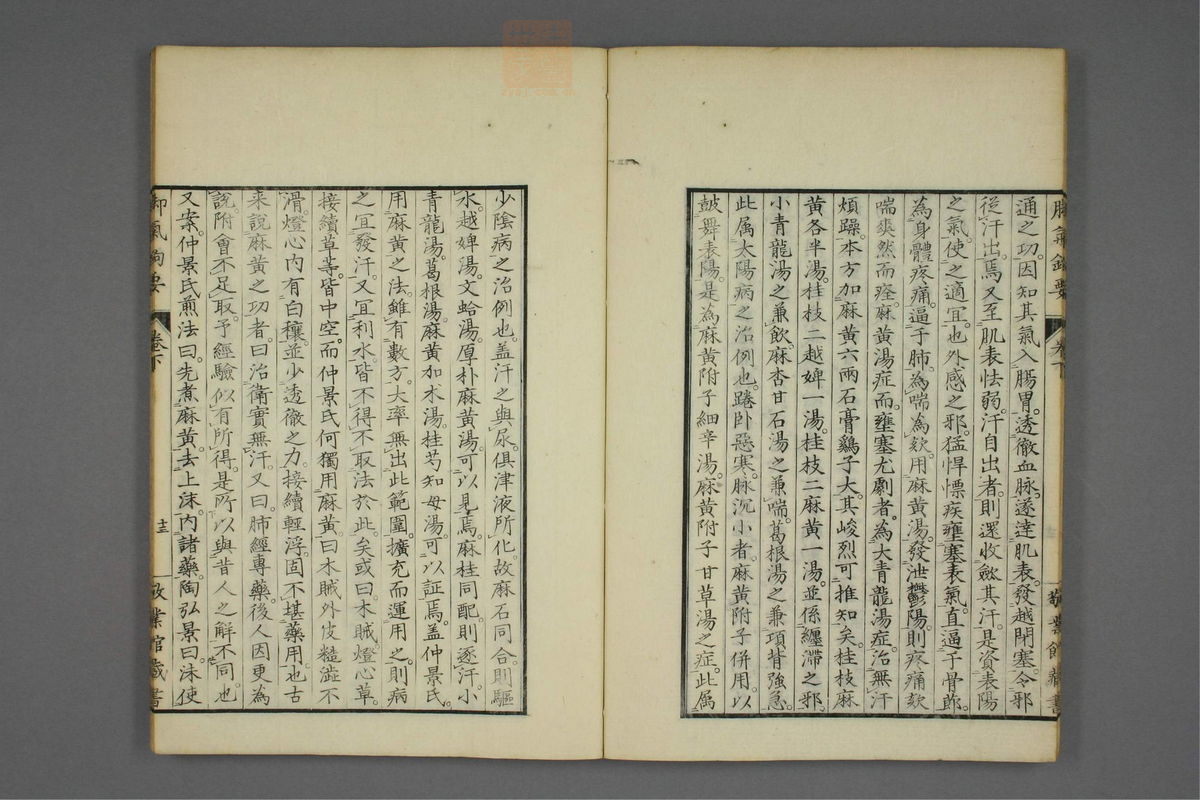 通之功。因知其氣入腸胃。透徹血脉。遂達肌表。發越閉塞。令邪
從汗出焉。又至肌表怯弱。汗自出者。則還收斂其汗。是資表陽
之氣。使之適宜也。外感之邪。猛悍慓疾。壅塞表氣。直逼于骨節。
為身體疼痛。逼于肺。為喘為欬。用麻黃湯。發泄鬱陽。則疼痛欬
喘爽然而痊。麻黃湯症。而壅塞尤劇者。為大青龍湯症。治無汗
煩躁。本方加麻黃六兩石膏鷄子大。其峻烈可推知矣。桂枝麻
黃各半湯。桂枝二越婢一湯。桂枝二麻黃一湯。並係纏滯之邪。
小青龍湯之兼飲。麻杏甘石湯之兼喘。葛根湯之兼項背強急。
此属太陽病之治例也。踡卧惡寒。脉沉小者。麻黃附子併用。以
鼓舞表陽。是為麻黃附子細辛湯。麻黃附子甘草湯之症。此属
少陰病之治例也。盖汗之與尿。俱津液所化。故麻石同合。則驅
水。越婢湯。文蛤湯。厚朴麻黃湯。可以見焉。麻桂同配。則逐汗。小
青龍湯。葛根湯。麻黃加朮湯。桂芍知母湯。可以証焉。盖仲景氏。
用麻黃之法。雖有數方。大率無出此範圍。擴充而運用之。則病
之宜發汗。又宜利水。皆不得不取法於此矣。或曰。木賊。燈心草。
接續草等。皆中空。而仲景氏何獨用麻黃。曰木賊外皮糙澁不
滑。燈心內有白穰。並少透徹之力。接續輕浮。固不堪藥用也。古
来說麻黃之功者。曰治衛實無汗。又曰。肺經專藥。後人因更為
說附會。不足取。予經驗似有所得。是所以與昔人之解不同也
又案。仲景氏煎法曰。先煮麻黃。去上沫。內諸藥。陶弘景曰。沫使
卷下
十三
敬業館藏書